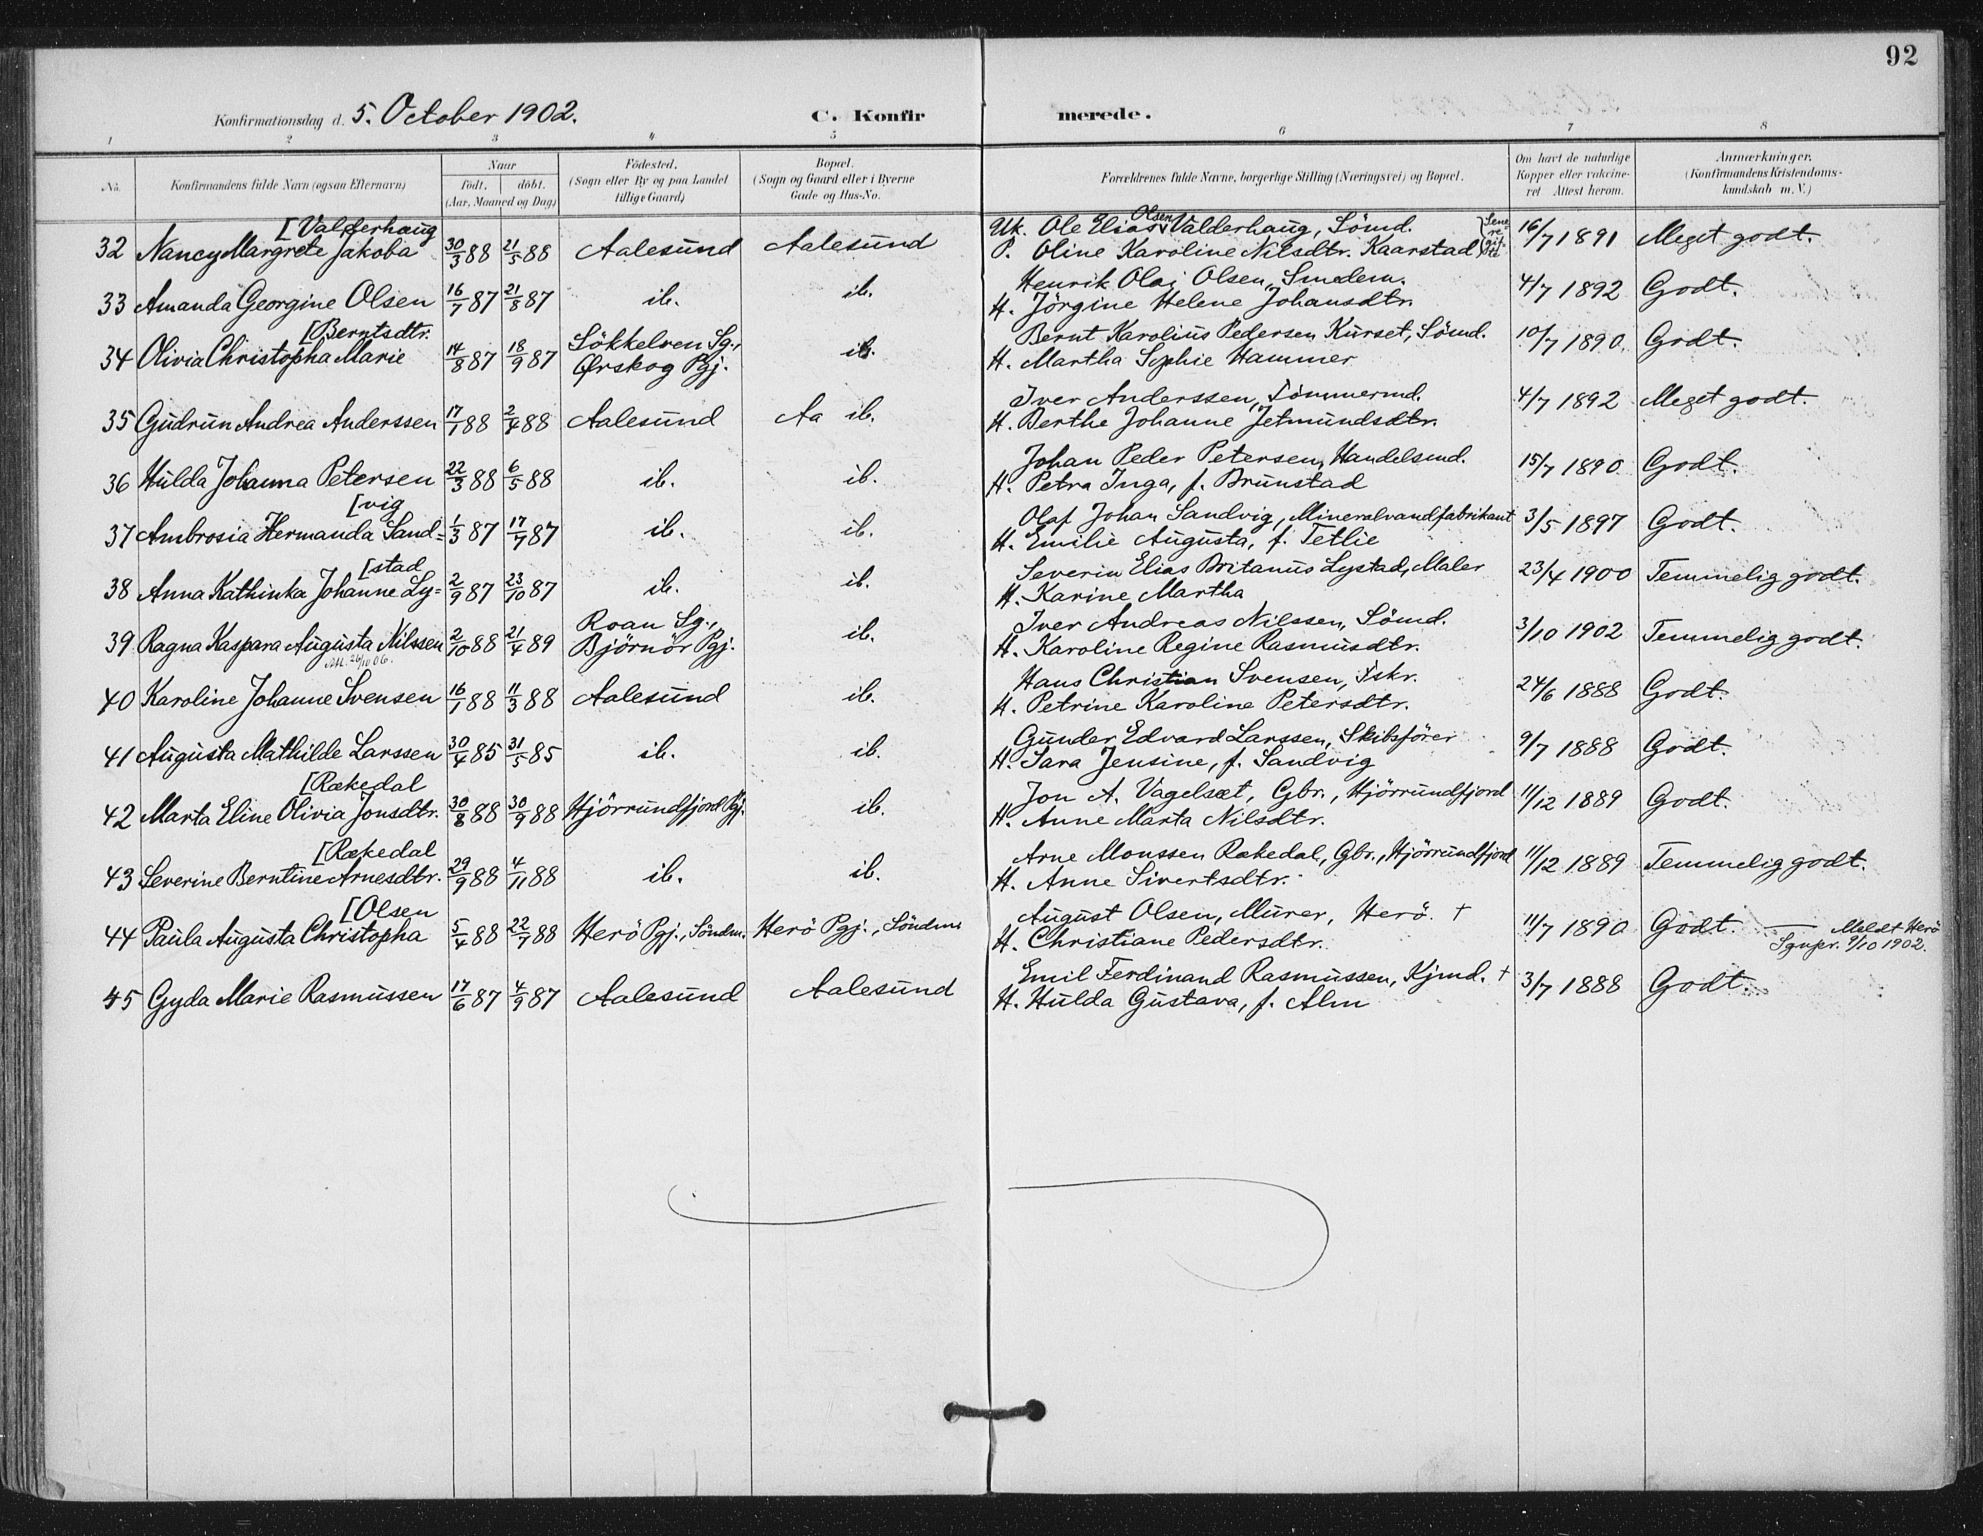 92
Konfirmationsdag d. 5. October 1902. C. Konfir merede.
1 2 3 4 5 6 7 8
No. Konfirmandens fulde Navn (ogsaa Efternavn) Naar födt. döbt. (Aar, Maaned og Dag) Födested. (Sogn eller By og paa Landet tillige Gaard) Bopæl. (Sogn og Gaard eller i Byerne Gade og Hus-No. Forældrenes fulde Navne, borgerlige Stilling (Næringsvei) og Bopæl. Om havt de naturlige Kopper eller vakcineret Attest herom. Anmærkninger. (Konfirmandens Kristendomskundskab m. V.)
[Valderhaug Uk. Ole Elias Olsen Valderhaug, Sömd. {Senere gifted
32 Nancy Margrete Jakoba 30/3 88 21/5 88 Aalesund Aalesund P. Oline Karoline Nilsdtr. Kaarstad 16/7 1891 Meget godt.
Henrik Olai Olsen, Smedem.
33 Amanda Georgine Olsen 16/7 87 21/8 87 ib. ib. H. Jörgine Helene Johansdtr. 4/7 1892 Godt.
[Berntsdtr. Sökkelven Sg., Bernt Karolius Pedersen Kurset, Sömd.
34 Olivia Christopha Marie 14/8 87 18/9 87 Ørskog Pgj. ib. H. Martha Sophie Hammer 10/7 1890. Godt.
Iver Anderssen, Tömmermd.
35 Gudrun Andrea Anderssen 17/1 88 2/4 88 Aalesund Aa ib. H. Berthe Johanne Jetmundsdtr. 4/7 1892 Meget godt.
Johan Peder Petersen, Handelsmd.
36 Hulda Johanna Petersen 22/3 88 6/5 88 ib. ib. H. Petra Inga, f. Brunstad 15/7 1890 Godt.
[vig Olaf Johan Sandvig, Mineralvandfabrikant
37 Ambrosia Hermanda Sand= 1/3 87 17/7 87 ib. ib. H. Emilie Augusta, f. Tetlie 3/5 1897 Godt.
[stad Severin Elias Britanus Lystad, Maler
38 Anna Kathinka Johanne Ly= 2/9 87 23/10 87 ib. ib. H. Karine Martha 23/4 1900 Temmelig godt.
Roan Sg., Iver Andreas Nilssen, Sömd.
39 Ragna Kaspara Augusta Nilssen 2/10 88 21/4 89 Björnör Pgj. ib. H. Karoline Regine Rasmusdtr. 3/10 1902 Temmelig godt.
Att. 26/10 06.
Hans Christian Svensen, Fskr.
40 Karoline Johanne Svensen 16/1 88 11/3 88 Aalesund ib. H. Petrine Karoline Petersdtr. 24/6 1888 Godt.
Gunder Edvard Larssen, Skibsförer
41 Augusta Mathilde Larssen 30/4 85 31/5 85 ib. ib. H. Sara Jensine, f. Sandvig 9/7 1888 Godt.
[Rækedal Jon A. Vagelsæt, Gbr., Hjörrundfjord
42 Marta Eline Olivia Jonsdtr. 30/8 88 30/9 88 Hjörrundfjord Pgj. ib. H. Anne Marta Nilsdtr. 11/12 1889 Godt.
[Rækedal Arne Monssen Rækedal, Gbr., Hjörrundfjord
43 Severine Berntine Arnesdtr. 29/9 88 4/11 88 ib. ib. H. Anne Sivertsdtr. 11/12 1889 Temmelig godt.
[Olsen August Olsen, Murer, Herö. †
44 Paula Augusta Christopha 5/4 88 22/7 88 Herö Pgj., Söndm. Herö Pgj., Söndm. H. Christiane Pedersdtr. 11/7 1890 Godt. — Meldt Herö Sgnpr. 9/10 1902.
Emil Ferdinand Rasmussen, Kjmd. †
45 Gyda Marie Rasmussen 17/6 87 4/9 87 Aalesund Aalesund H. Hulda Gustava, f. Alm 3/7 1888 Godt.